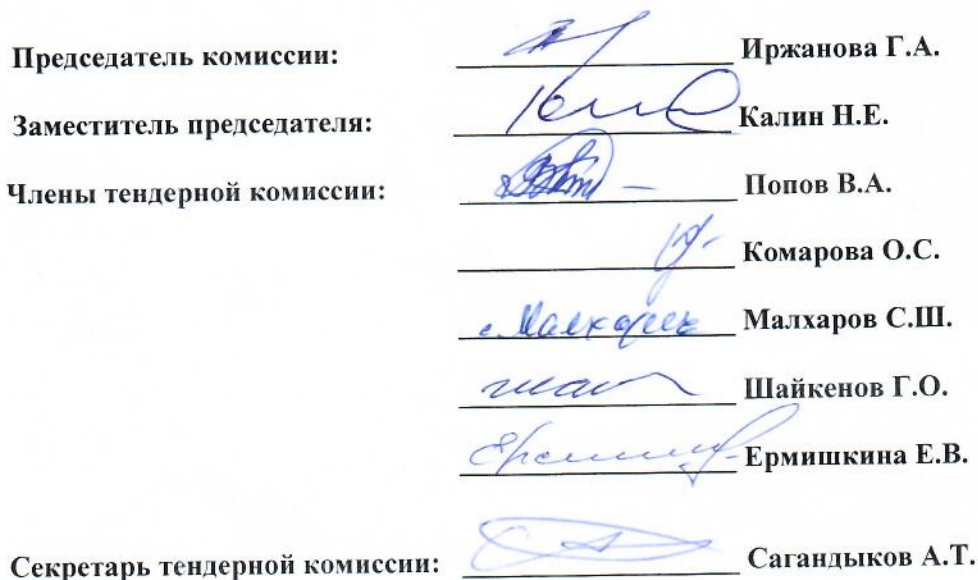 Председатель комиссии: Иржанова Г.А.
Заместитель председателя: Калин Н.Е.
Члены тендерной комиссии: Попов В.А.
Комарова О.С.
Малхаров С.Ш.
Шайкенов Г.О.
Ермишкина Е.В.
Секретарь тендерной комиссии: Сагандыков А.Т.